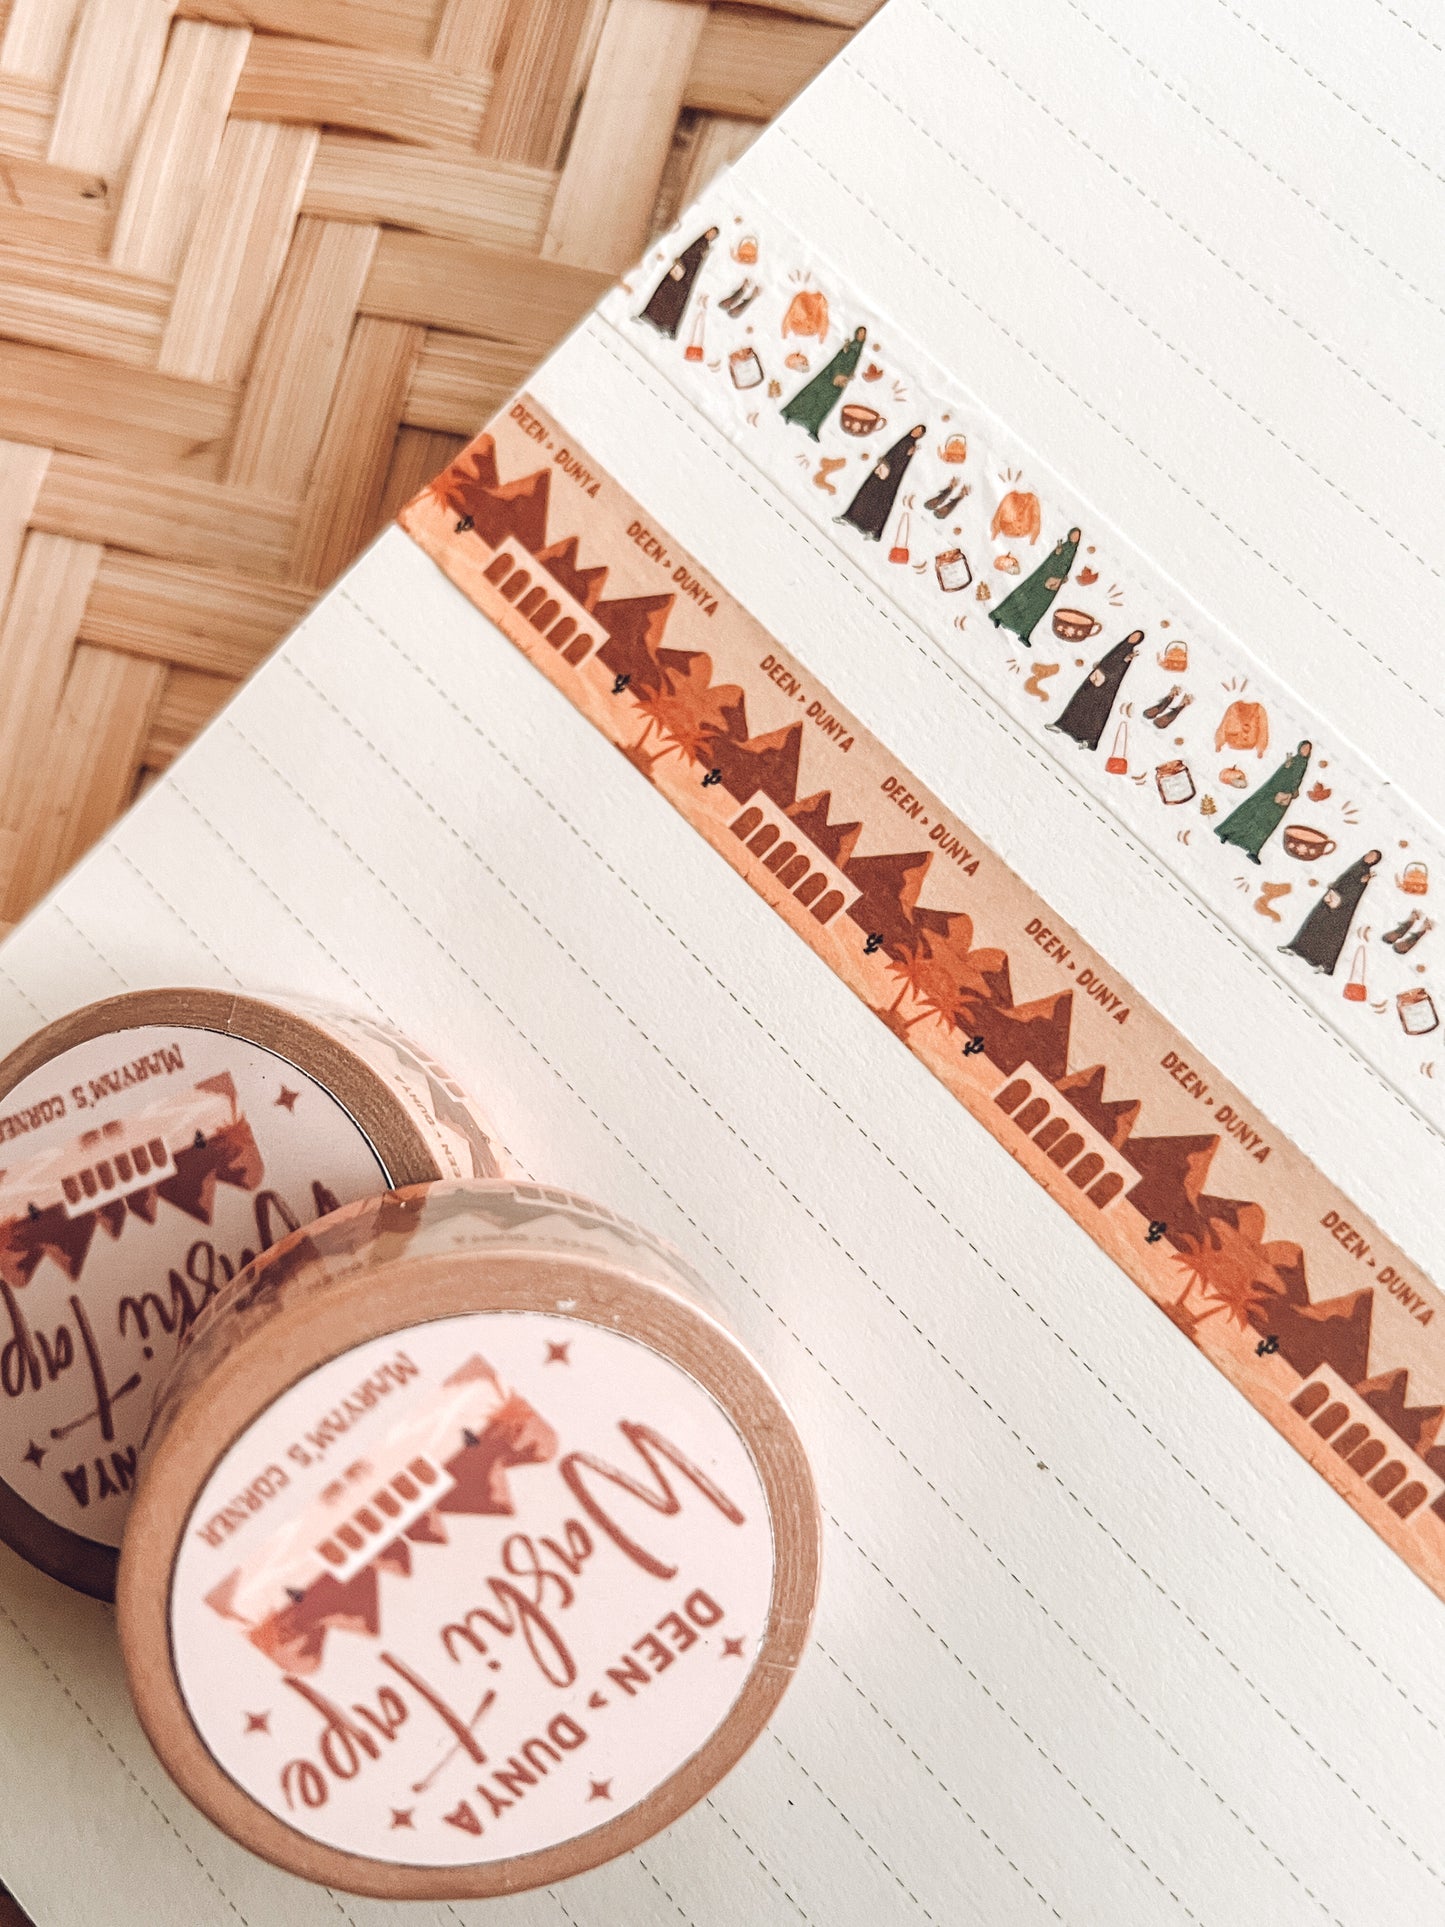 DEEN > DUNYA
DEEN > DUNYA
DEEN > DUNYA
DEEN > DUNYA
DEEN > DUNYA
DEEN > DUNYA
DEEN > DUNYA
DEEN > DUNYA
MARYAM'S CORNER
Washi
Tape
DUNYA
DEEN > DUNYA
Washi
Tape
MARYAM'S CORNER